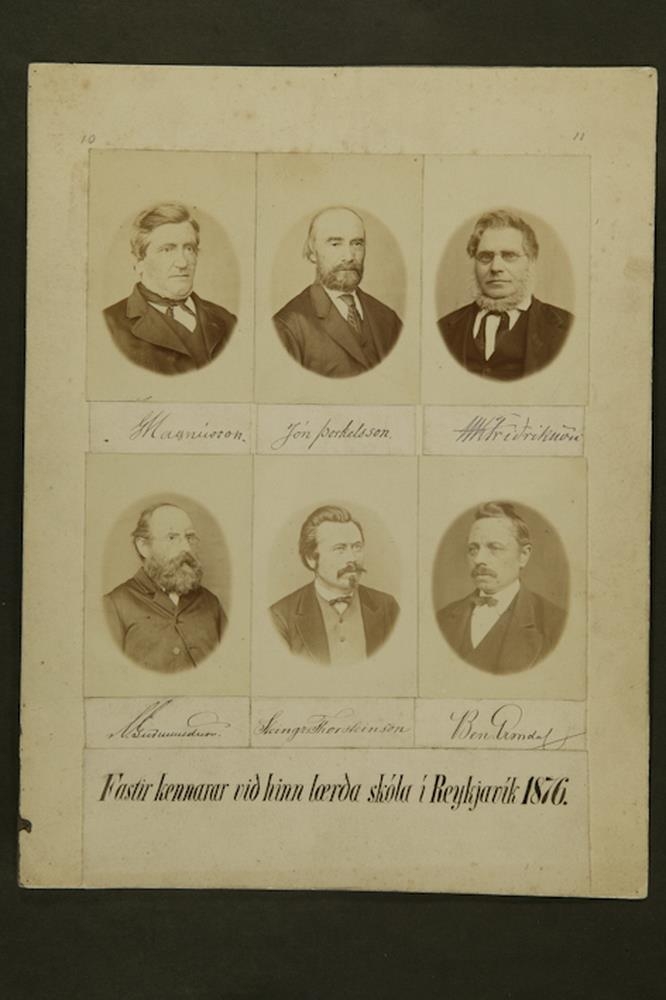 10 11
G Magnússon. Jón Þorkelsson. HKFriðriksson
Guðmundsson. Steingr Thorsteinson Ben Gröndal
Fastir kennarar við hinn lærða skóla í Reykjavík 1876.